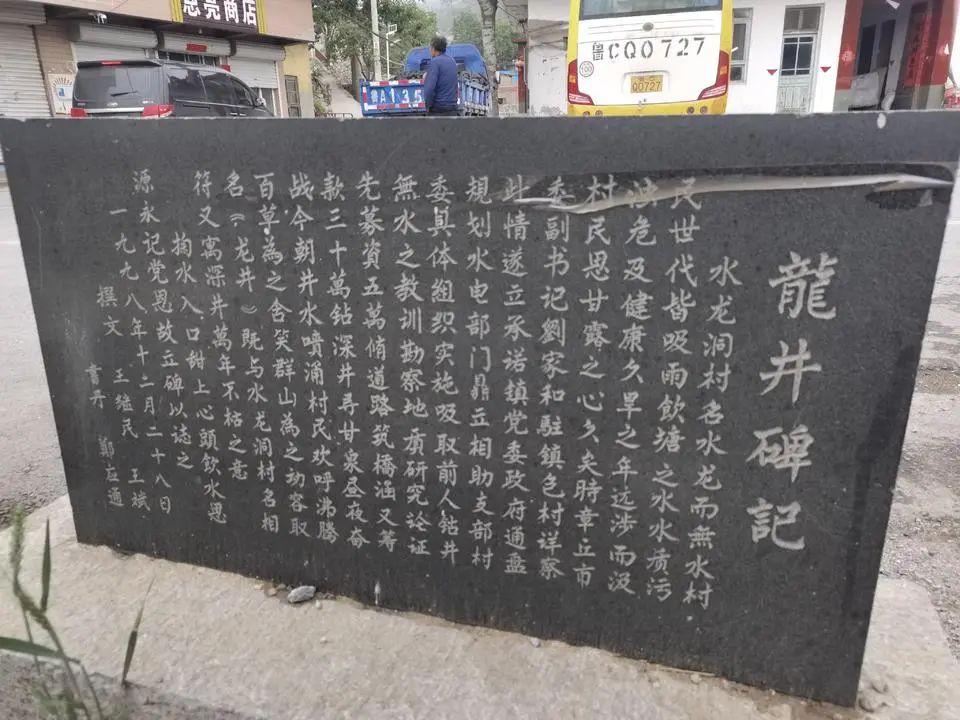 龍井碑記
水龙洞村名水龙而無水村
民世代皆吸雨飲塘之水水质污
浊危及健康久旱之年远涉而汲
村民思甘露之心久矣時章丘市
委副书记劉家和駐鎮包村详察
此情遂立承诺镇党委政府通盘
規划水电部门鼎立相助支部村
委具体组织实施吸取前人钻井
無水之教训勘察地质研究论证
先募資五萬脩道路筑橋涵又筹
款三十萬钻深井寻甘泉昼夜奋
战今朝井水喷涌村民欢呼沸腾
百草為之含笑群山為之动容取
名《龙井》既与水龙洞村名相
符又寓深井萬年不枯之意
掬水入口甜上心頭飲水思
源永记党恩故立碑以誌之
一九九八年十二月二十八日
撰文 王继民 王斌
書丹 鄭应通
思亮商店
鲁A135
鲁CQ0727
100
Q0727